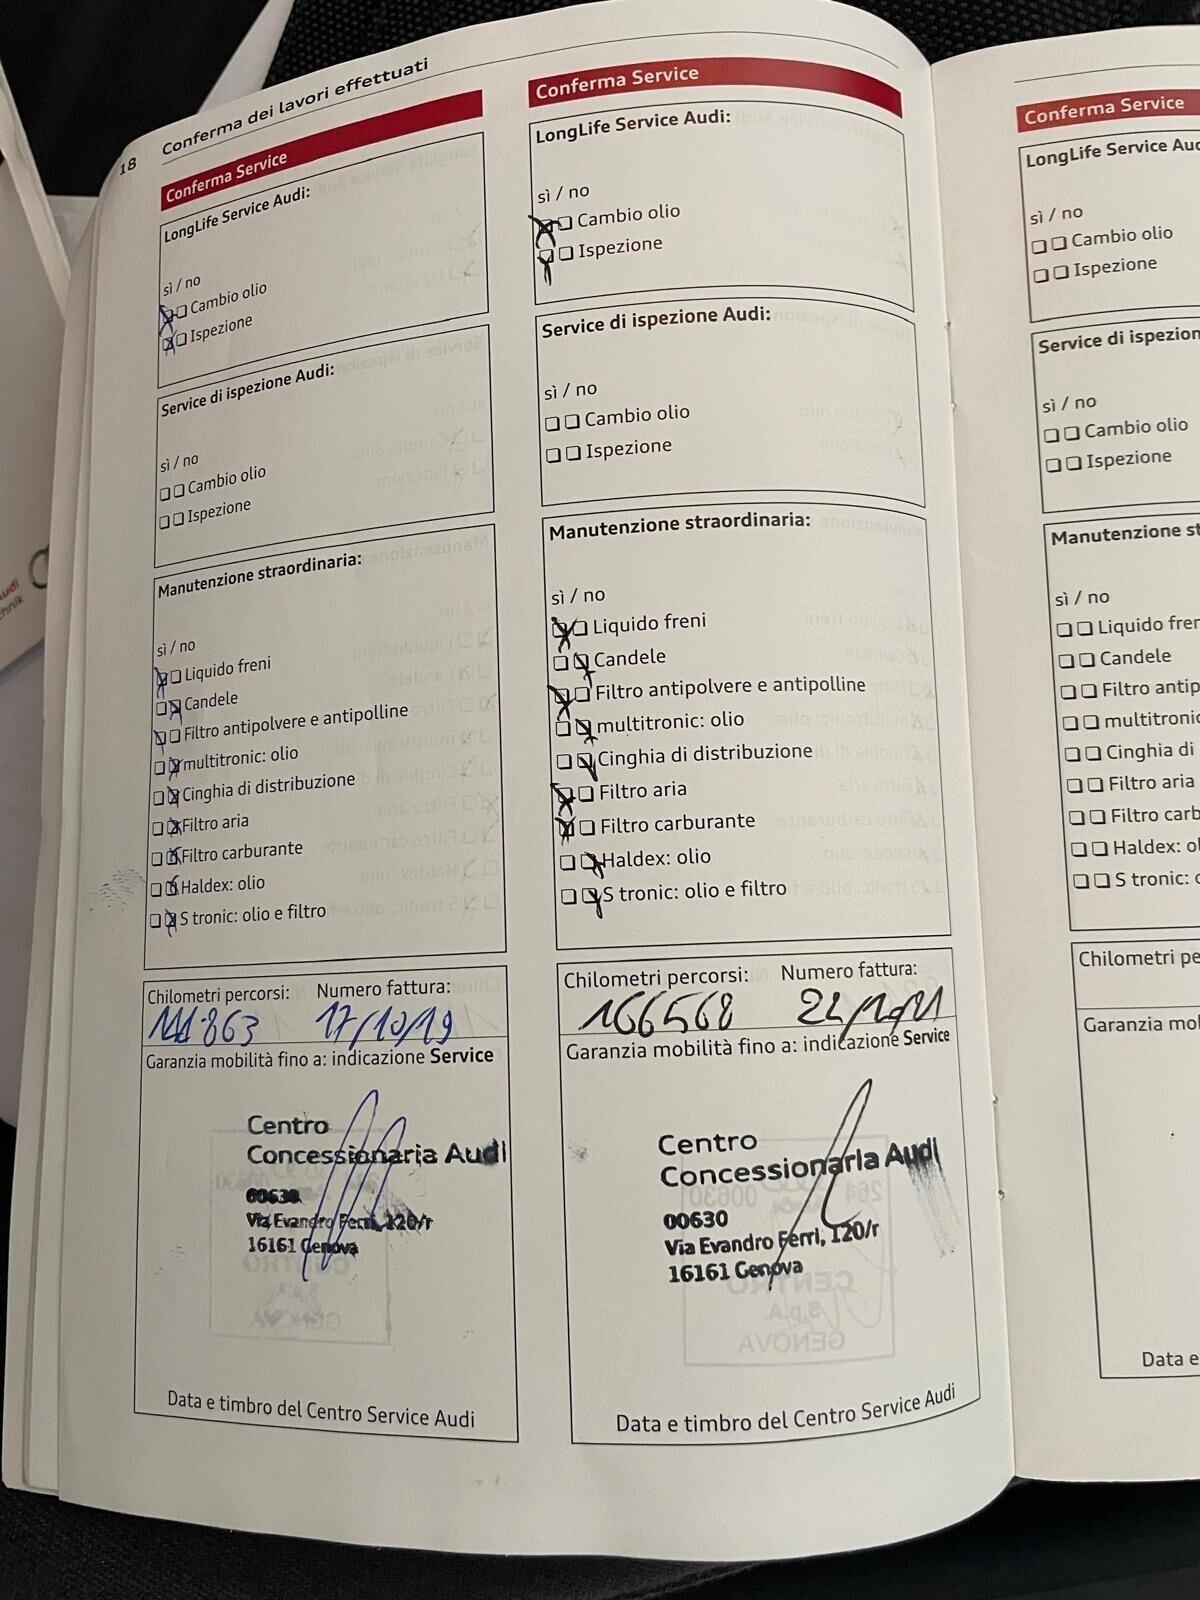 18 Conferma dei lavori effettuati
Conferma Service
LongLife Service Audi:
sì / no
Cambio olio
Ispezione
Service di ispezione Audi:
sì / no
Cambio olio
Ispezione
Manutenzione straordinaria:
sì / no
Liquido freni
Candele
Filtro antipolvere e antipolline
multitronic: olio
Cinghia di distribuzione
Filtro aria
Filtro carburante
Haldex: olio
S tronic: olio e filtro
Chilometri percorsi: Numero fattura:
111.863 17/10/19
Garanzia mobilità fino a: indicazione Service
Centro
Concessionaria Audi
00630
Via Evandro Ferri, 120/r
16161 Genova
Data e timbro del Centro Service Audi
Conferma Service
LongLife Service Audi:
sì / no
Cambio olio
Ispezione
Service di ispezione Audi:
sì / no
Cambio olio
Ispezione
Manutenzione straordinaria:
sì / no
Liquido freni
Candele
Filtro antipolvere e antipolline
multitronic: olio
Cinghia di distribuzione
Filtro aria
Filtro carburante
Haldex: olio
S tronic: olio e filtro
Chilometri percorsi: Numero fattura:
166568
Garanzia mobilità fino a: indicazione Service
Centro
Concessionaria Audi
00630
Via Evandro Ferri, 120/r
16161 Genova
Data e timbro del Centro Service Audi
Conferma Service
LongLife Service Aud
sì / no
Cambio olio
Ispezione
Service di ispezion
sì / no
Cambio olio
Ispezione
Manutenzione st
sì / no
Liquido fren
Candele
Filtro antip
multitronic
Cinghia di
Filtro aria
Filtro carb
Haldex: ol
S tronic: o
Chilometri pe
Garanzia mo
Data e